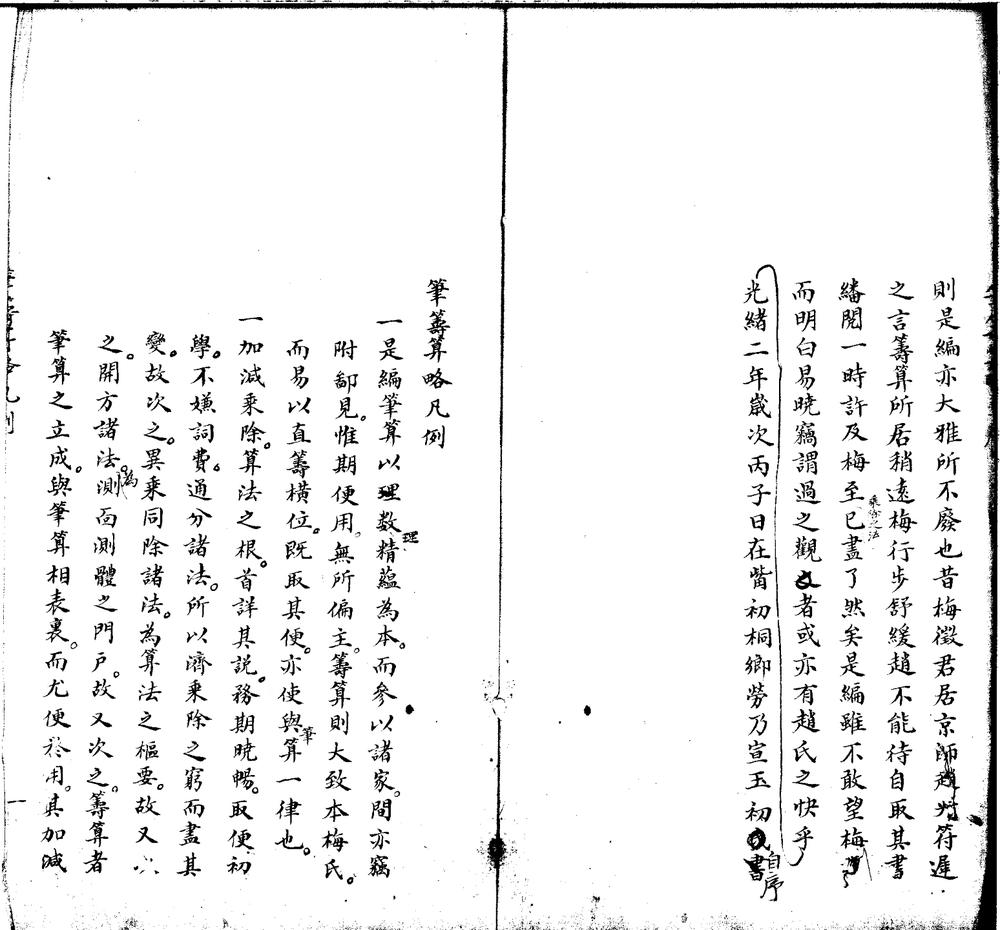 則是編亦大雅所不廢也昔梅徵君居京師趙州符遲
之言籌算所居稍遠梅行步舒緩趙不能待自取其書
乘除之法
繙閱一時許及梅至已盡了然矣是編雖不敢望梅
而明白易曉竊謂過之觀者或亦有趙氏之快乎
光緒二年歲次丙子日在觜初桐鄉勞乃宣玉初
自序
筆籌算略凡例
一是編筆算以數理精蘊為本。而參以諸家。間亦竊
附鄙見。惟期便用。無所偏主。籌算則大致本梅氏。
而易以直籌橫位。既取其便。亦使與筆算一律也。
一加減乘除。算法之根。首詳其説。務期曉暢。取便初
學。不嫌詞費。通分諸法。所以濟乘除之窮而盡其
變。故次之。異乘同除諸法。為算法之樞要。故又次
之。開方諸法。為測面測體之門戶。故又次之。籌算者
筆算之立成。與筆算相表裏。而尤便於用。其加減
一